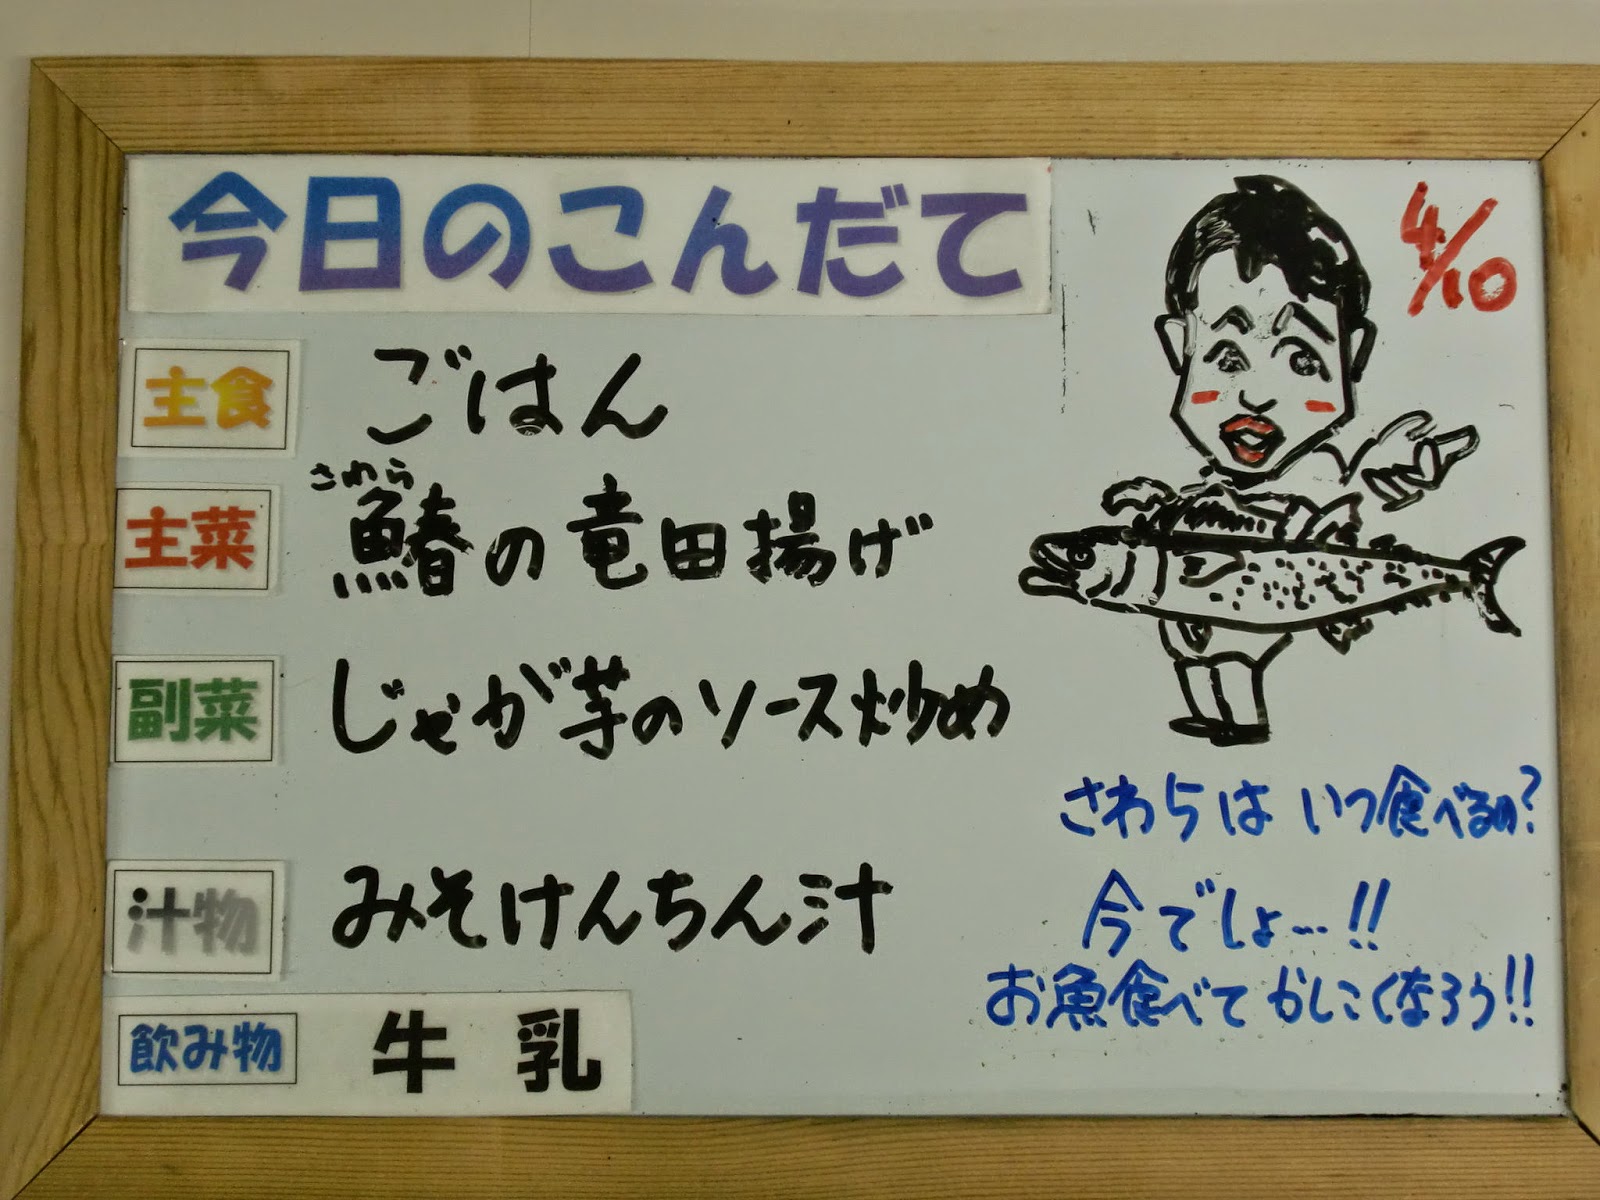 今日のこんだて
4/10
主食 ごはん
さわら
主菜 鰆の竜田揚げ
副菜 じゃが芋のソース炒め
汁物 みそけんちん汁
飲み物 牛乳
さわらは いつ食べるの?
今でしょ…!!
お魚食べて かしこくなろう!!